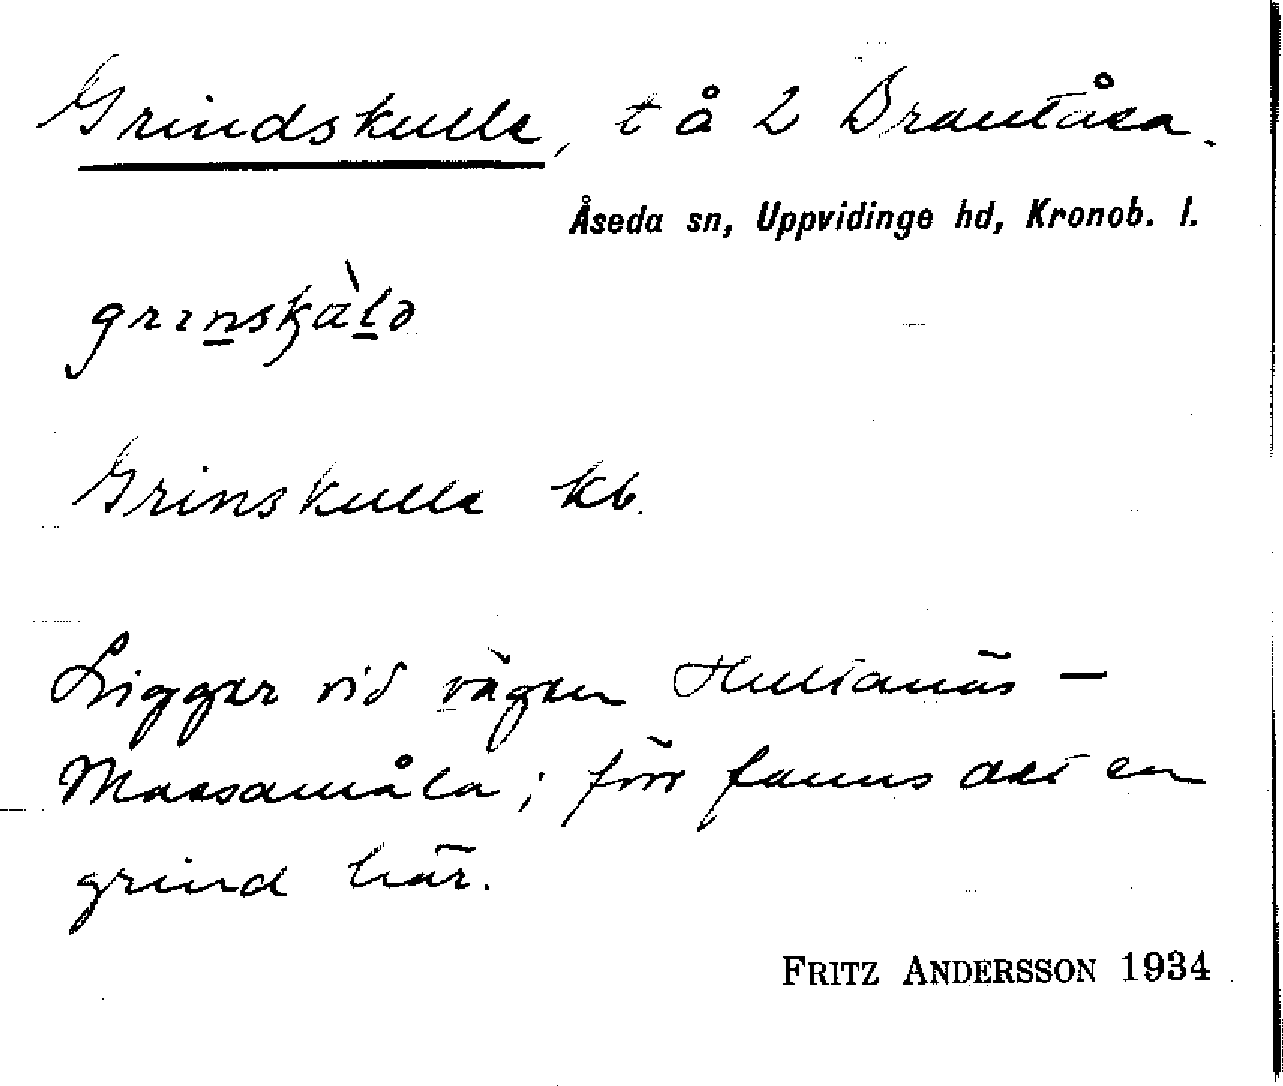 Grindskulle, t å 2 Brantåsa.
Åseda sn, Uppvidinge hd, Kronob. l.
Grinskulle kb.
Ligger vid vägen Hultanäs –
Massamåla; förr fanns det en
grind här.
FRITZ ANDERSSON 1934